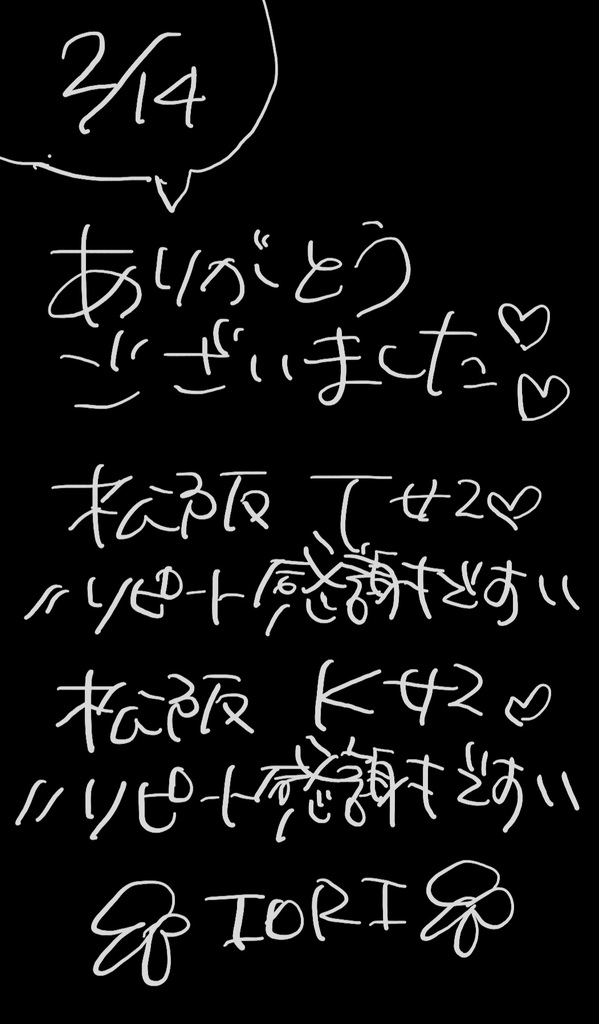 2/14
ありがとう
ございました♡♡
松阪 Tせ2♡
〃リピート感謝です〃
松阪 Kせ2♡
〃リピート感謝です〃
IORI